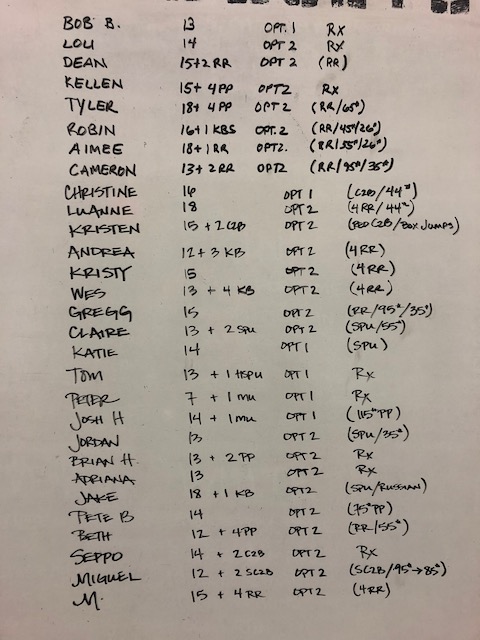 BOB B. 13 OPT. 1 Rx
LOU 14 OPT 2 Rx
DEAN 15+2 RR OPT 2 (RR)
KELLEN 15+ 4PP OPT2 Rx
TYLER 18+ 4PP OPT2 (RR/65#)
ROBIN 16+1 KBS OPT.2 (RR/45#/26#)
AIMEE 18+1RR OPT2. (RR/55#/26#)
CAMERON 13+2RR OPT2 (RR/95#/35#)
CHRISTINE 16 OPT 1 (C2B/44#)
LUANNE 18 OPT 2 (4RR/44#)
KRISTEN 15 + 2C2B OPT 2 (C2B/BOX JUMPS)
ANDREA 12+ 3 KB OPT 2 (4RR)
KRISTY 15 OPT 2 (4RR)
WES 13 + 4 KB OPT 2 (4RR)
GREGG 15 OPT 2 (RR/95#/35#)
CLAIRE 13 + 2SPU OPT2 (SPU/55#)
KATIE 14 OPT 1 (SPU)
TOM 13 + 1 HSPU OPT 1 Rx
PETER 7 + 1MU OPT 1 Rx
JOSH H 14 + 1MU OPT 1 (115#PP)
JORDAN 13 OPT 2 (SPU/35#)
BRIAN H. 13 + 2PP OPT 2 Rx
ADRIANA 13 OPT 2 Rx
JAKE 18 +1 KB OPT2 (SPU/RUSSIAN)
PETE B 14 OPT 2 (75#PP)
BETH 12 + 4PP OPT 2 (RR/55#)
SEPPO 14 + 2C2B OPT 2 Rx
MIGUEL 12 + 2SC2B OPT 2 (SC2B/95#→85#)
M. 15 + 4RR OPT2 (4RR)